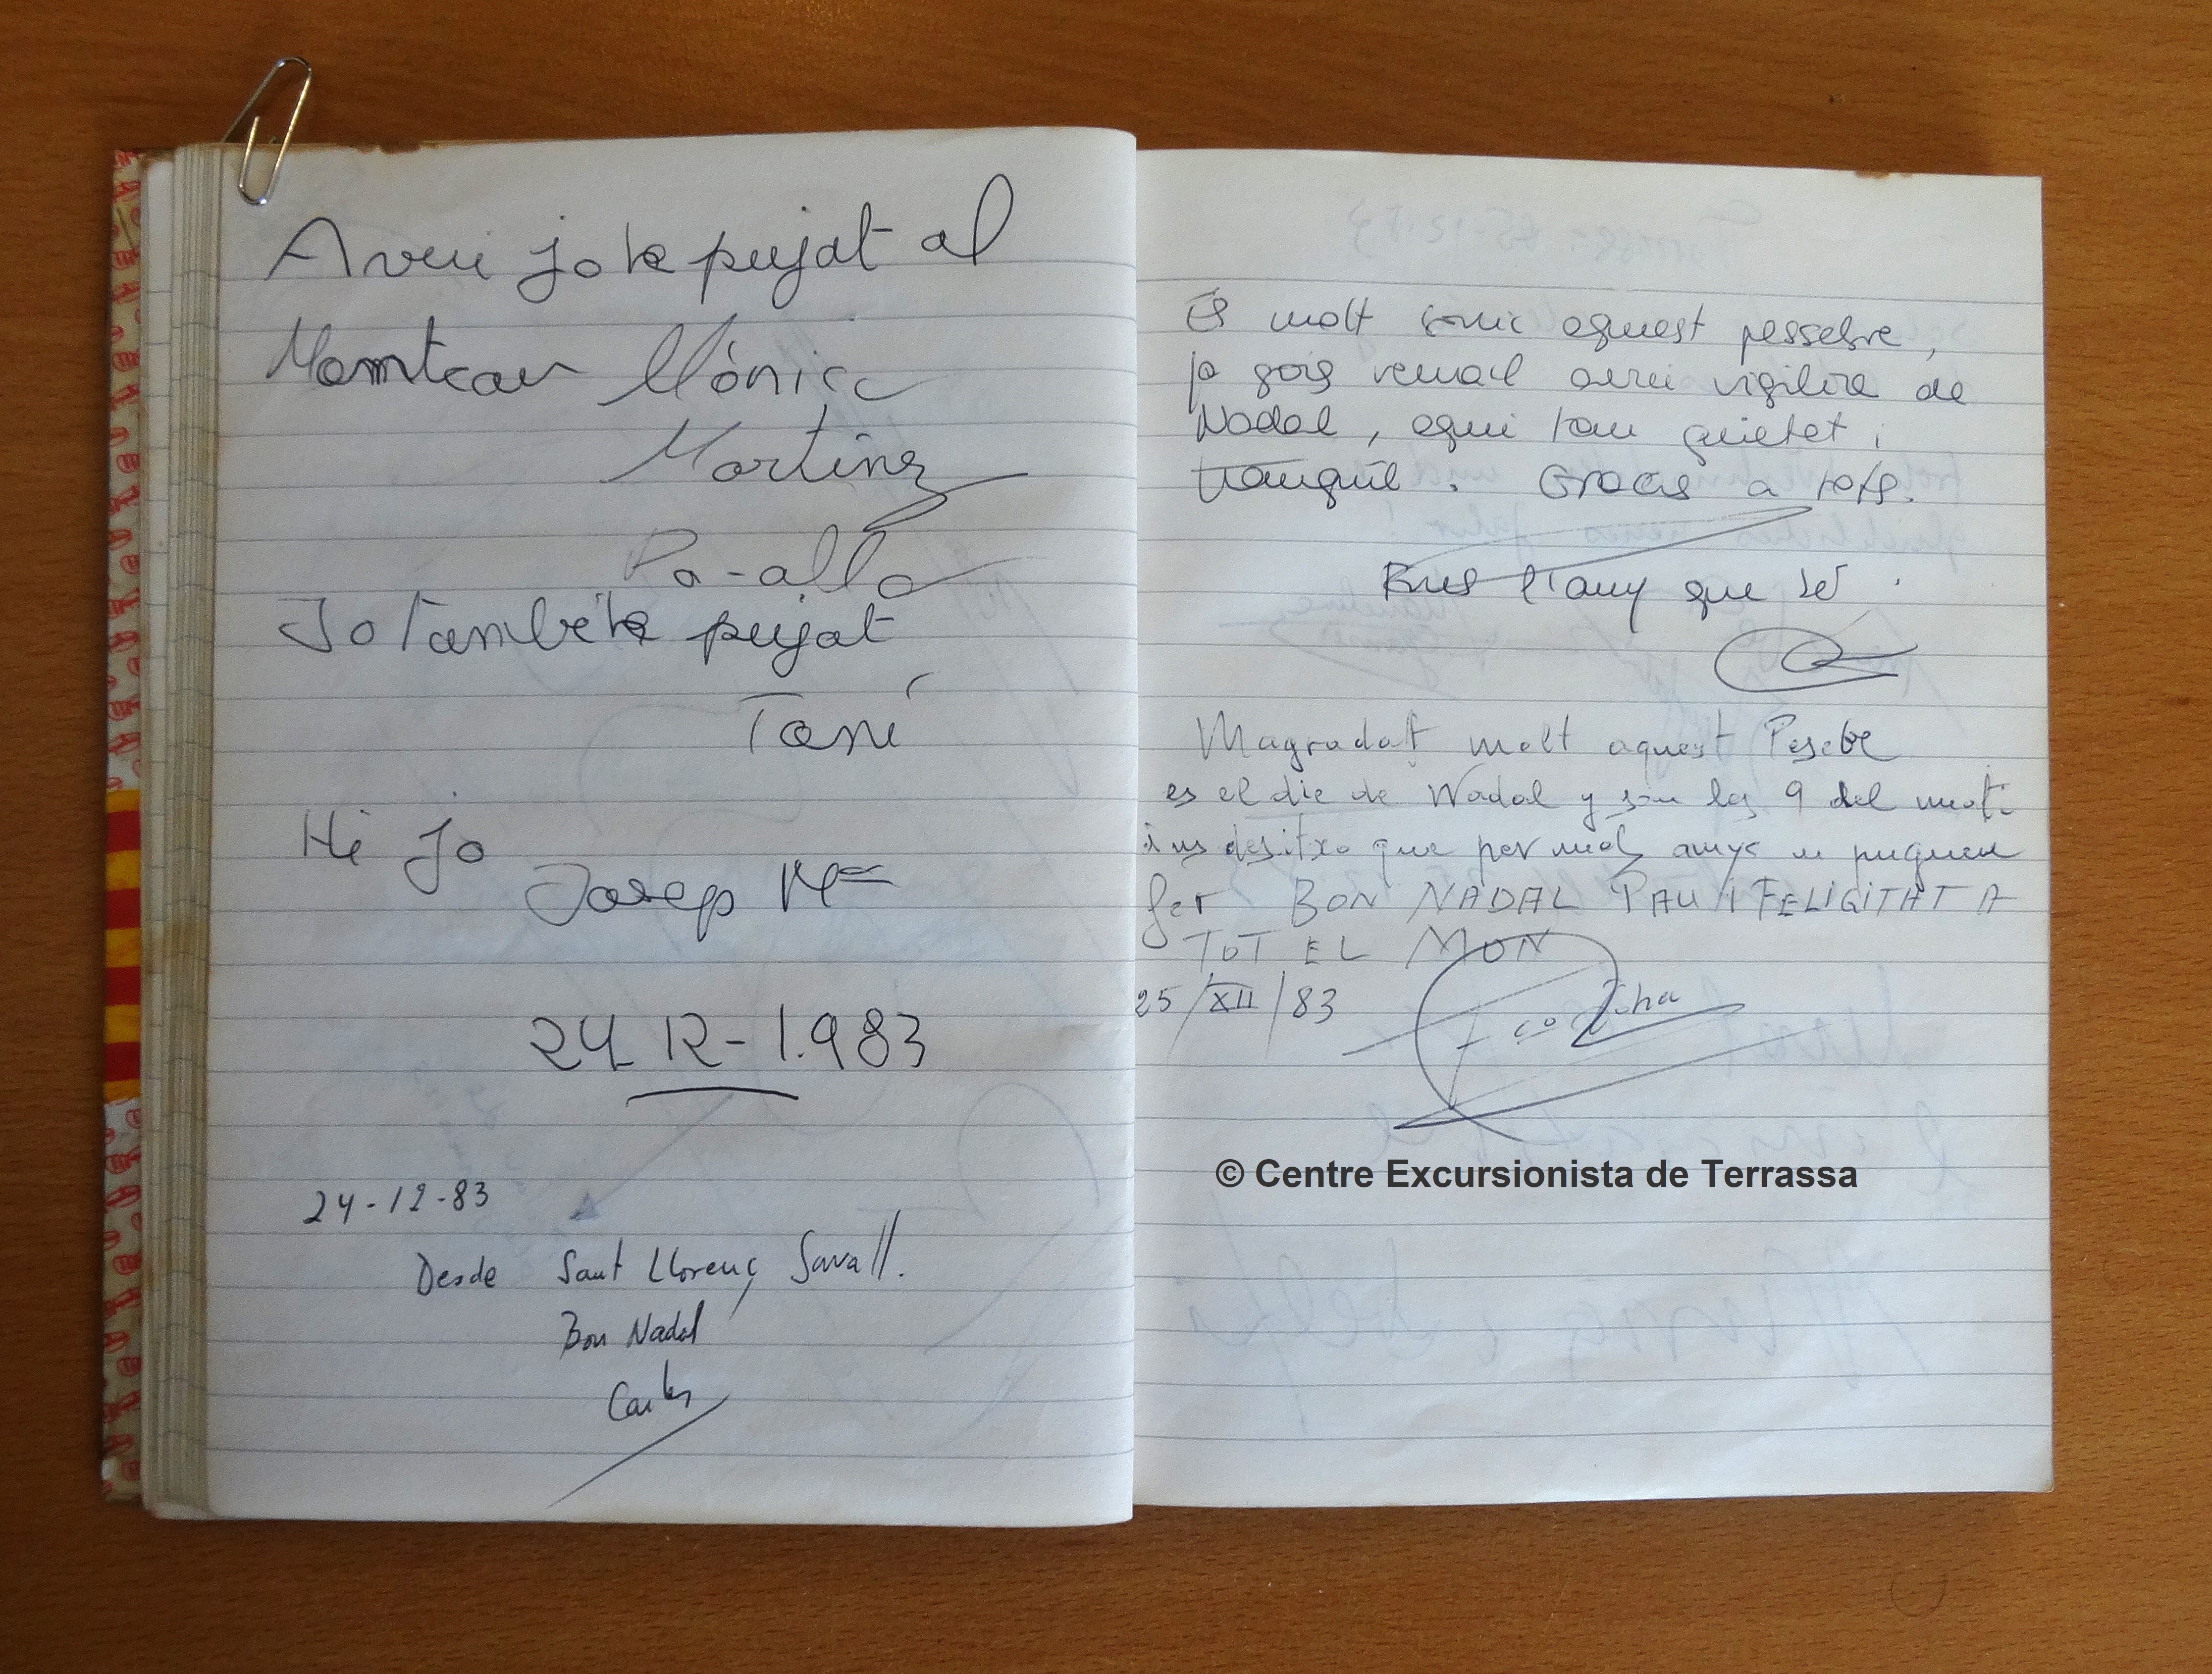 Avui jo he pujat al
Montcau Mònica
Martinez
Pa-alla
Jo També he pujat
Toni
Hi jo
Josep Mª
24 12-1.983
24-12-83
Desde Sant Llorenç Savall.
Bon Nadal
Carles
Es molt bonic aquest pessebre,
ja gois remail avui vigilia de
Nadal, aqui tan quietet i
tranquil. Gracies a tots.
Fins l'any que ve.
Magradat molt aquest Pesebre
es el die de Nadal y son las 9 del mati
i us desitxo que per molts anys u pugueu
fer BON NADAL PAU I FELICITAT A
TOT EL MON
25/XII/83
© Centre Excursionista de Terrassa